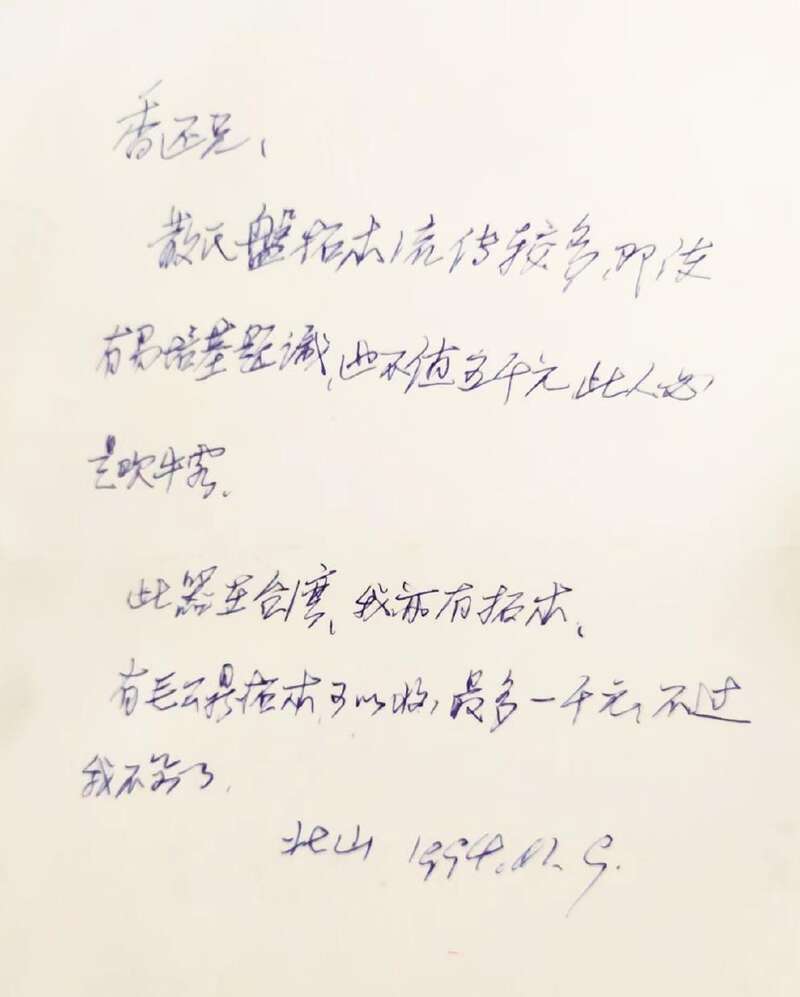 香还兄、
散氏盤拓本流传较多,即使
有易培基题识,也不值五千元,此人必
是吹牛客.
此器在台湾、我亦有拓本、
有毛公鼎拓本可以收,最多一千元,不过
我不要了.
北山 1994.12.9.